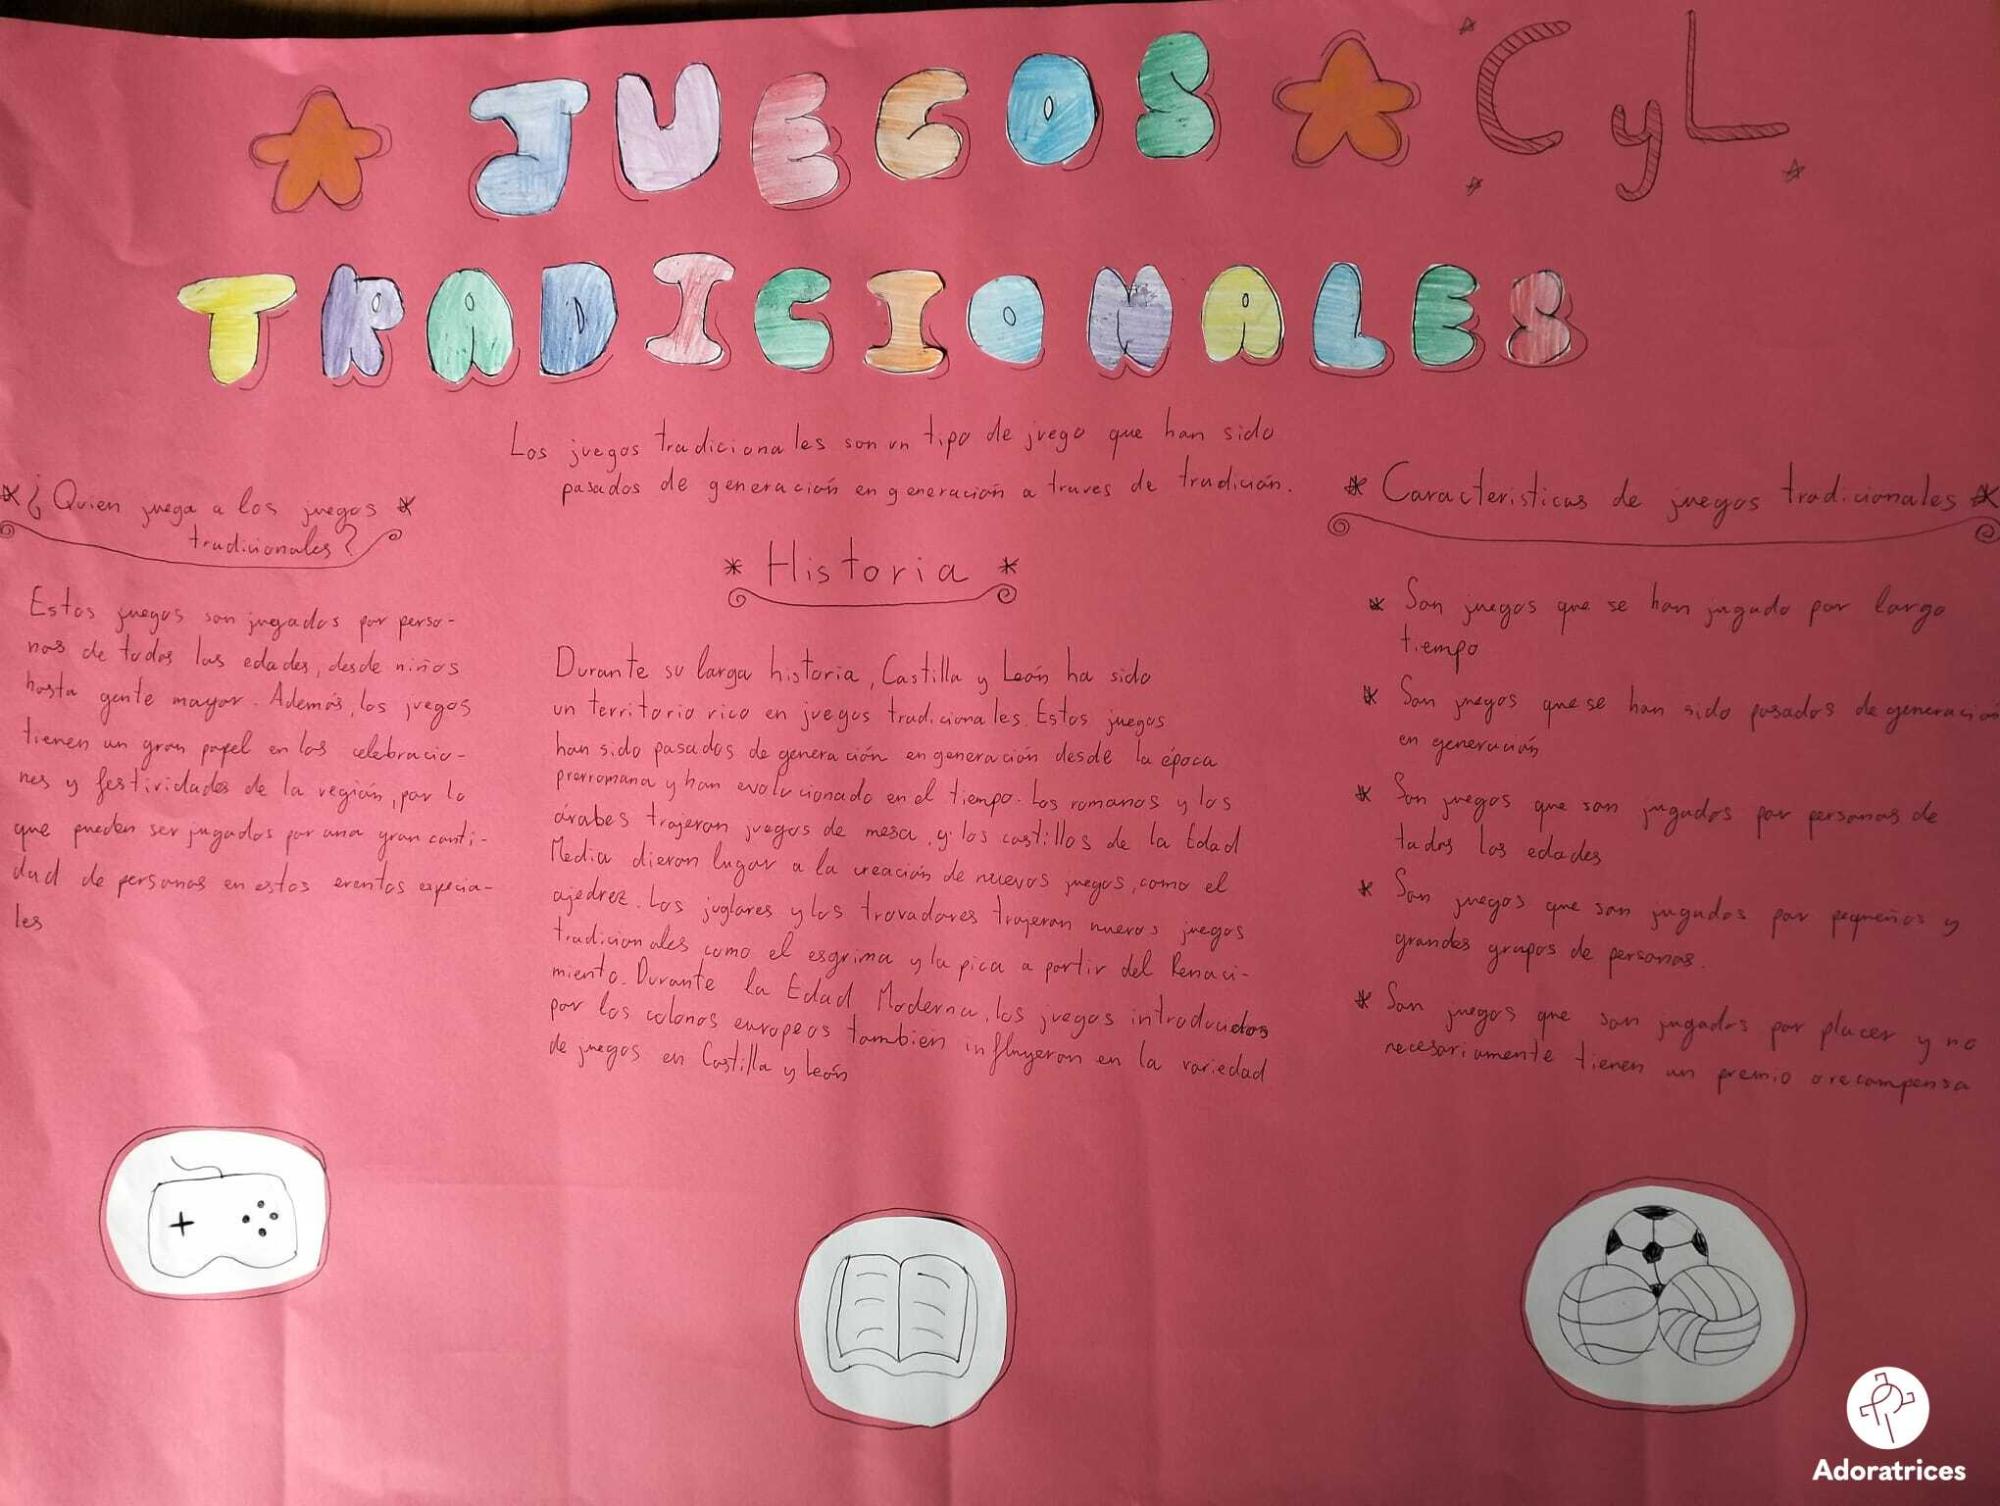 JUEGOS CyL
TRADICIONALES
Los juegos tradicionales son un tipo de juego que han sido
pasados de generación en generación a traves de tradición.
¿Quien juega a los juegos
tradicionales?
Estos juegos son jugados por perso-
nas de todas las edades, desde niños
hasta gente mayor. Además, los juegos
tienen un gran papel en las celebracio-
nes y festividades de la región, por lo
que pueden ser jugados por una gran canti-
dad de personas en estos eventos especia-
les
* Historia *
Durante su larga historia, Castilla y León ha sido
un territorio rico en juegos tradicionales. Estos juegos
han sido pasados de generación en generación desde la época
prerromana y han evolucionado en el tiempo. Los romanos y los
árabes trajeron juegos de mesa, y los castillos de la Edad
Media dieron lugar a la creación de nuevos juegos, como el
ajedrez. Los juglares y los trovadores trajeron nuevos juegos
tradicionales como el esgrima y la pica a partir del Renaci-
miento. Durante la Edad Moderna, los juegos introducidos
por los colonos europeos tambien influyeron en la variedad
de juegos en Castilla y León
* Caracteristicas de juegos tradicionales *
* Son juegos que se han jugado por largo
tiempo
* Son juegos que se han sido pasados de generación
en generación
* Son juegos que son jugados por personas de
todas las edades
* Son juegos que son jugados por pequeños y
grandes grupos de personas.
* Son juegos que son jugados por placer y no
necesariamente tienen un premio o recompensa
Adoratrices